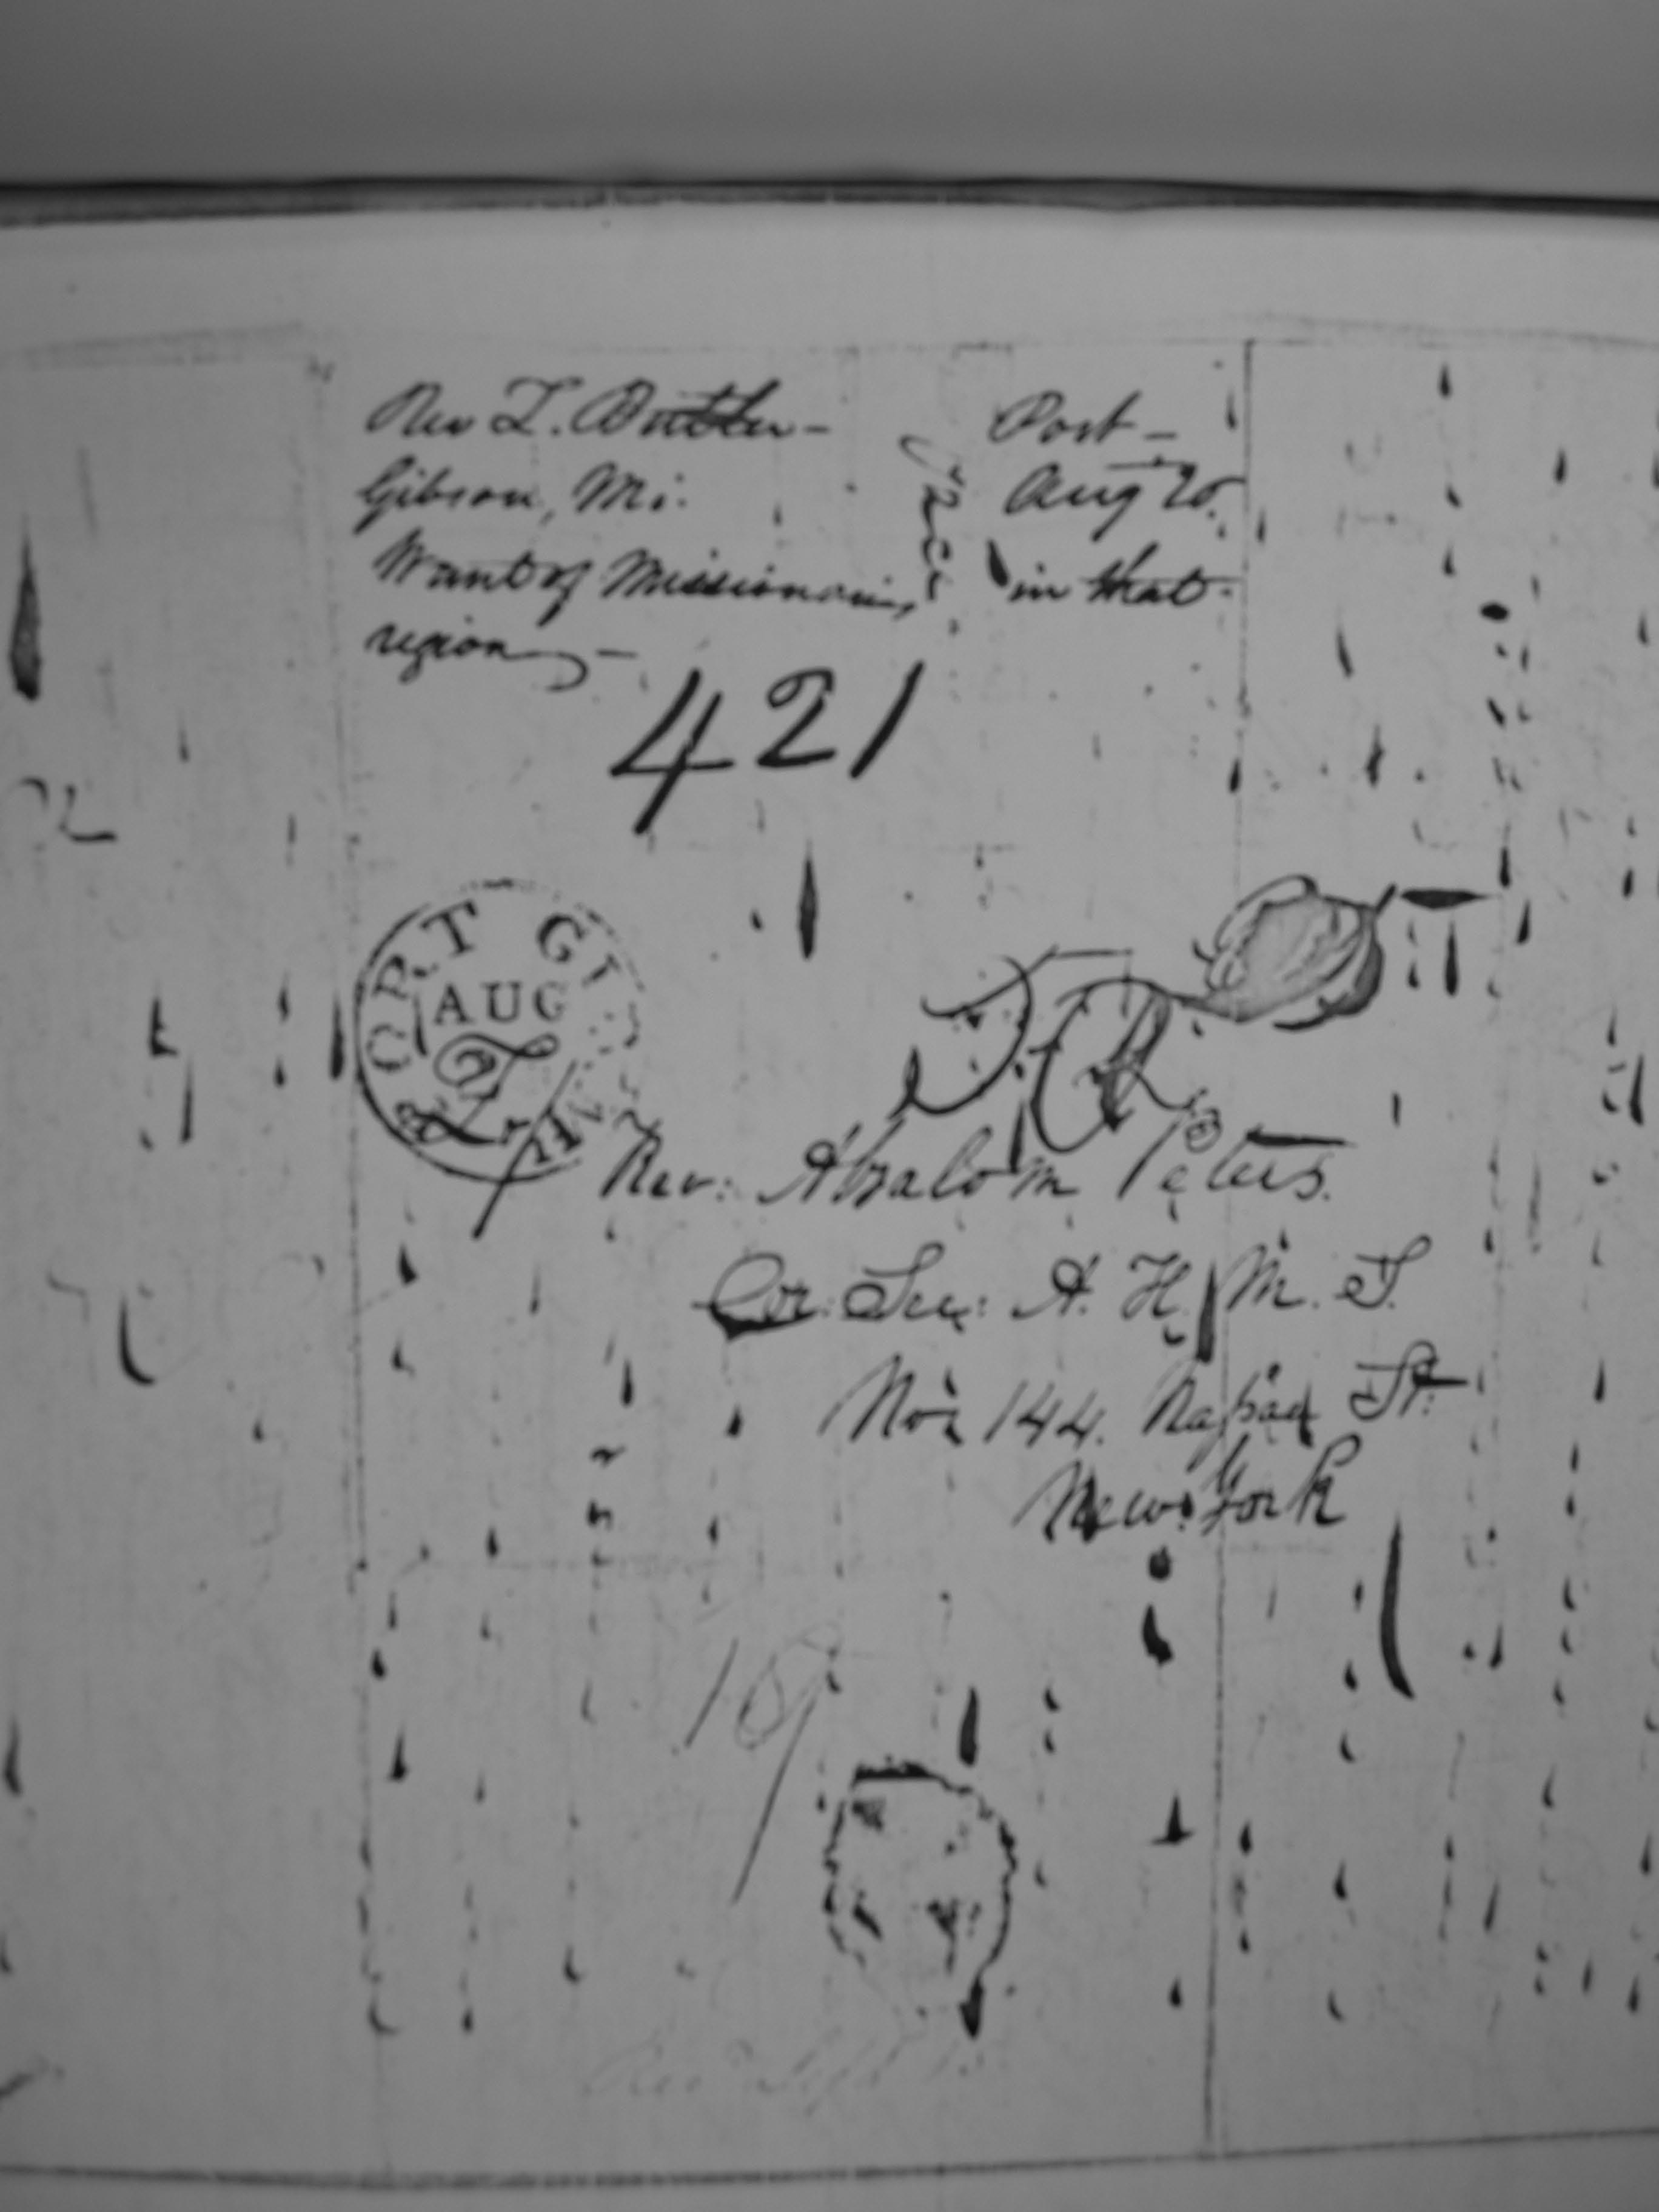 Rev Z. Butler – Port –
Gibson, Mi. Aug 20.
Want of Missionaries, in that
region –
421
PORT GI
AUG
21
MI
Rev: Absalom Peters.
Cor: Sec: A. H. M. S.
No: 144. Nassau St.
New York